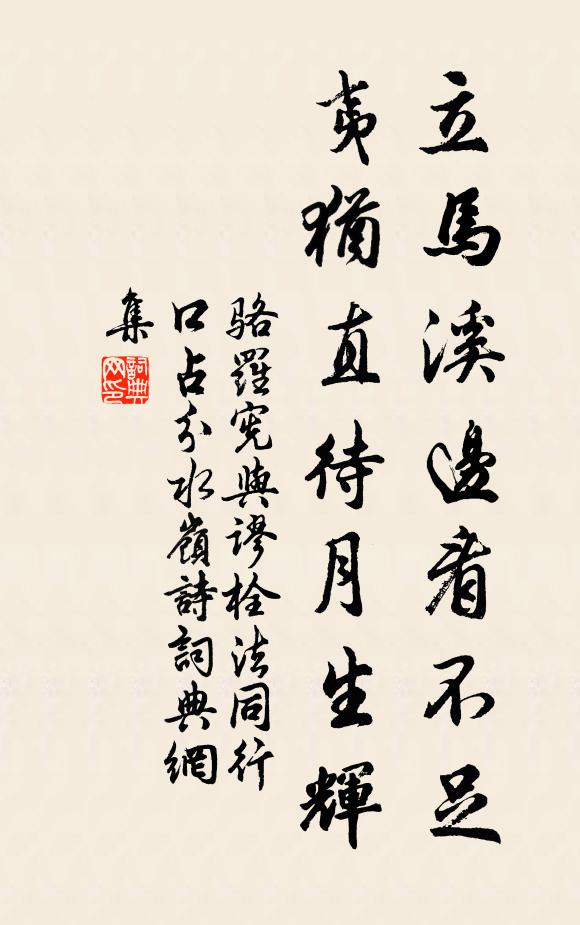 立馬溪邊看不足
夷猶直待月生輝
駱羅憲與謬栓法同行
口占分水嶺詩詞典網
集
詞典
网印